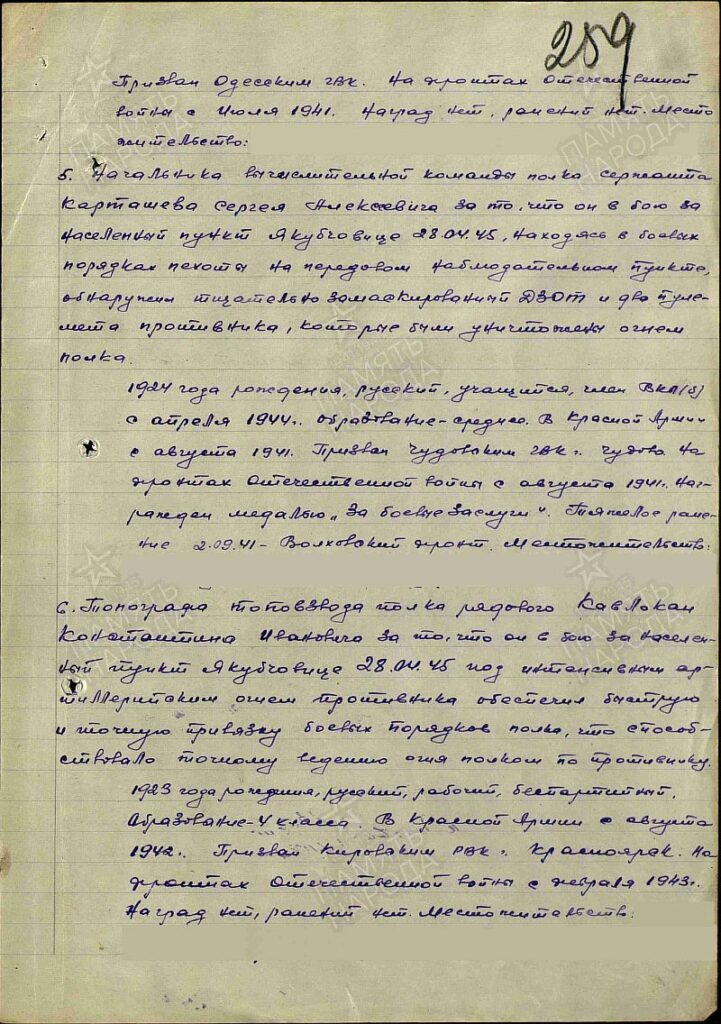 259
Призван Одесским ГВК. На фронтах Отечественной
войны с Июля 1941. Наград нет, ранений нет. Место
жительство:
5. Начальника вычислительной команды полка сержанта
Карташева Сергея Алексеевича за то, что он в бою за
населенный пункт Якубчовице 28.04.45, находясь в боевых
порядках пехоты на передовом наблюдательном пункте,
обнаружил тщательно замаскированный ДЗОТ и два пуле-
мета противника, которые были уничтожены огнем
полка.
1924 года рождения, русский, учащийся, член ВКП(б)
с апреля 1944г. образование-среднее. В Красной Армии
с августа 1941. Призван Чудовским РВК г. Чудово. На
фронтах Отечественной войны с августа 1941г. Наг-
ражден медалью „За боевые заслуги". Тяжелое ране-
ние 2.09.41 - Волховский фронт. Местожительство:
6. Топографа топовзвода полка рядового Кавлокан
Константина Ивановича за то, что он в бою за населен-
ный пункт Якубчовице 28.04.45 под интенсивным ар-
тиллерийским огнем противника обеспечил быструю
и точную привязку боевых порядков полка, что способ-
ствовало точному ведению огня полком по противнику.
1923 года рождения, русский, рабочий, беспартийный.
Образование-4 класса. В Красной Армии с августа
1942г. Призван Кировским РВК г. Красноярск. На
фронтах Отечественной войны с февраля 1943г.
Наград нет, ранений нет. Местожительство:
ПАМЯТЬ НАРОДА